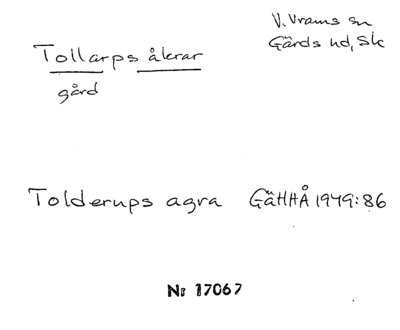 V. Vrams sn
Gärds hd, Sk
Tollarps åkrar
gård
Tolderups agra GäHHÅ 1949:86
Nr 17067